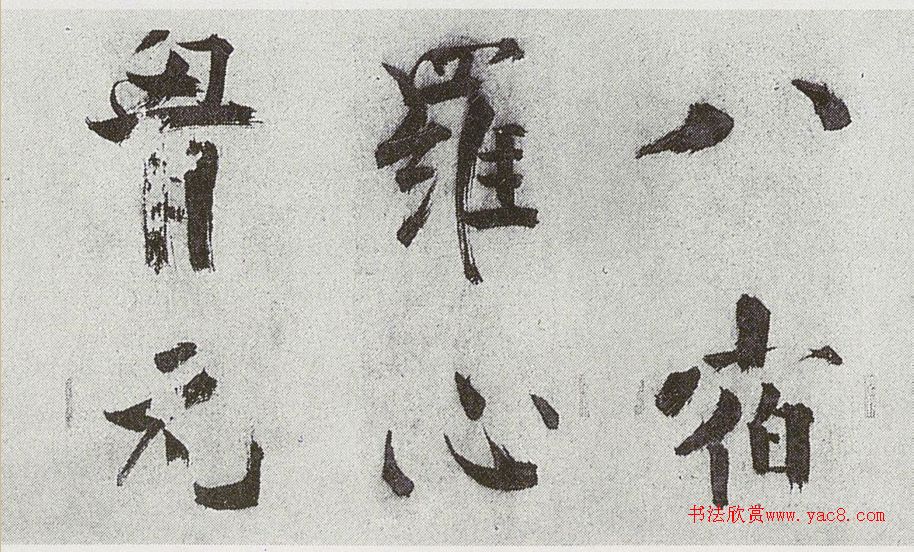 八宿
羅心
胷元
书法欣赏www.yac8.com